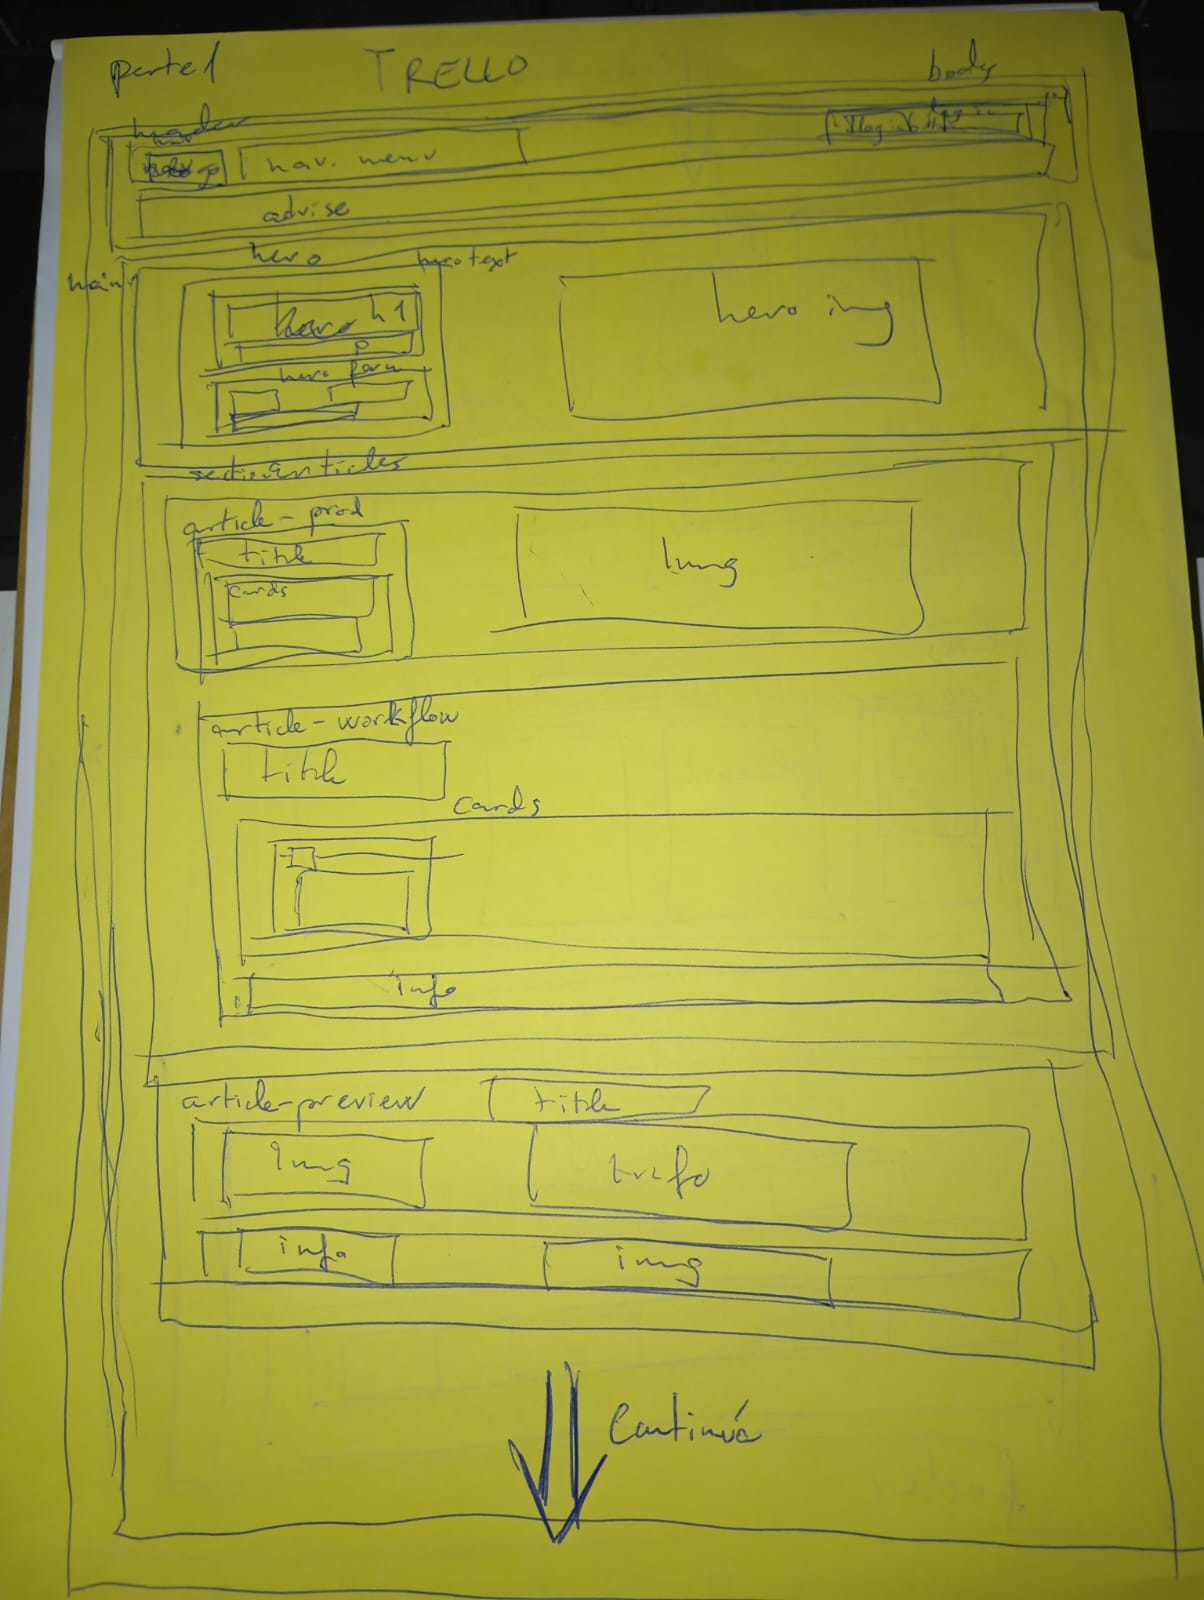 parte 1 TRELLO body
header
nav
nav. menu
advise
main
hero
hero text
h1
hero img
p
hero form
section articles
article-prod
title
Img
cards
article-workflow
title
cards
info
article-preview title
Img Info
info img
Continúa